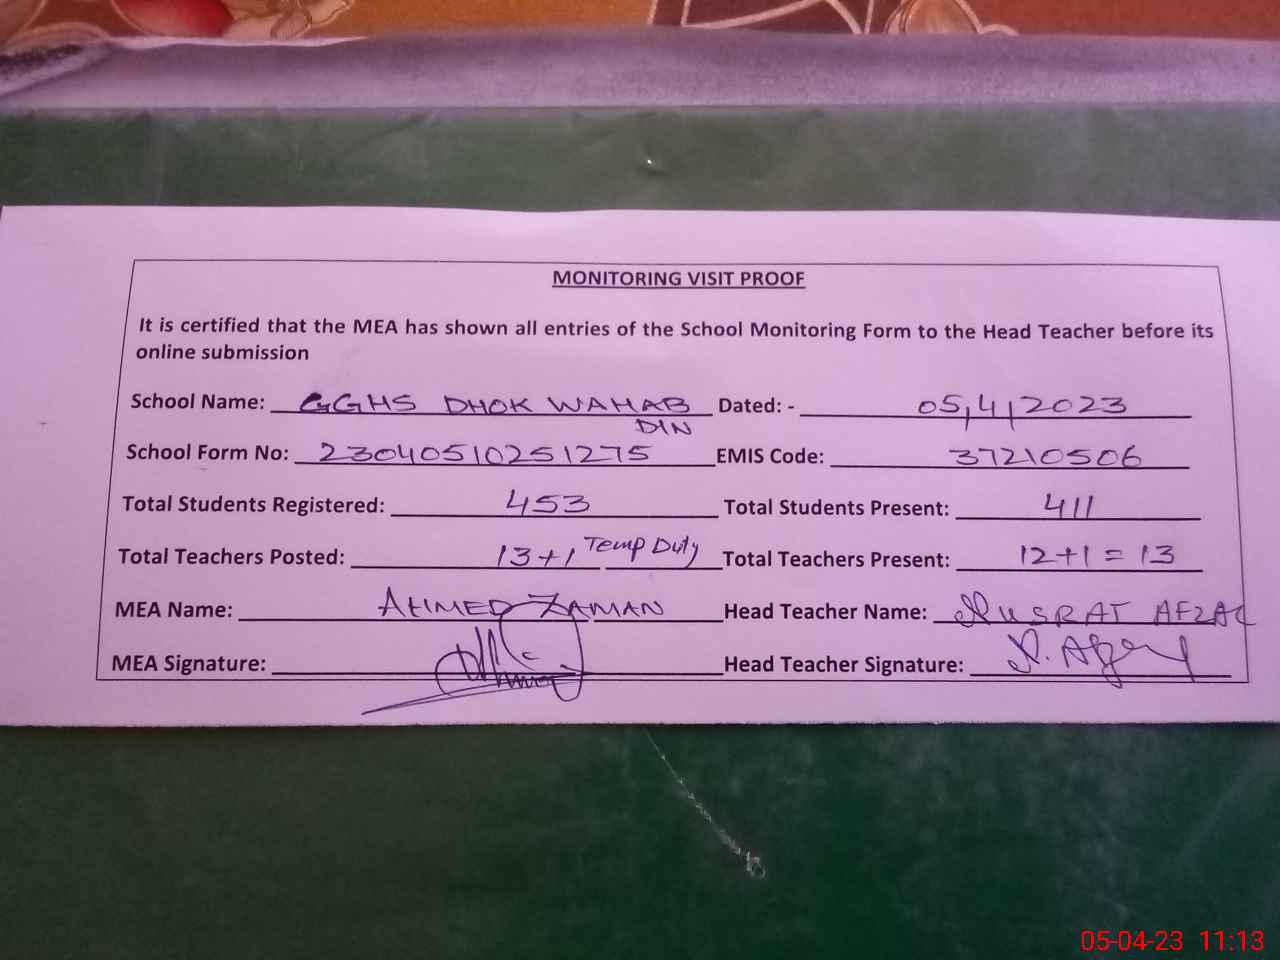 MONITORING VISIT PROOF
It is certified that the MEA has shown all entries of the School Monitoring Form to the Head Teacher before its
online submission
School Name: GGHS DHOK WAHAB Dated: - 05,4,2023
DIN
School Form No: 23040510251275 EMIS Code: 37210506
Total Students Registered: 453 Total Students Present: 411
Total Teachers Posted: 13+1 Temp Duty Total Teachers Present: 12+1 = 13
MEA Name: AHMED ZAMAN Head Teacher Name: NUSRAT AFZAL
MEA Signature: Head Teacher Signature:
05-04-23 11:13